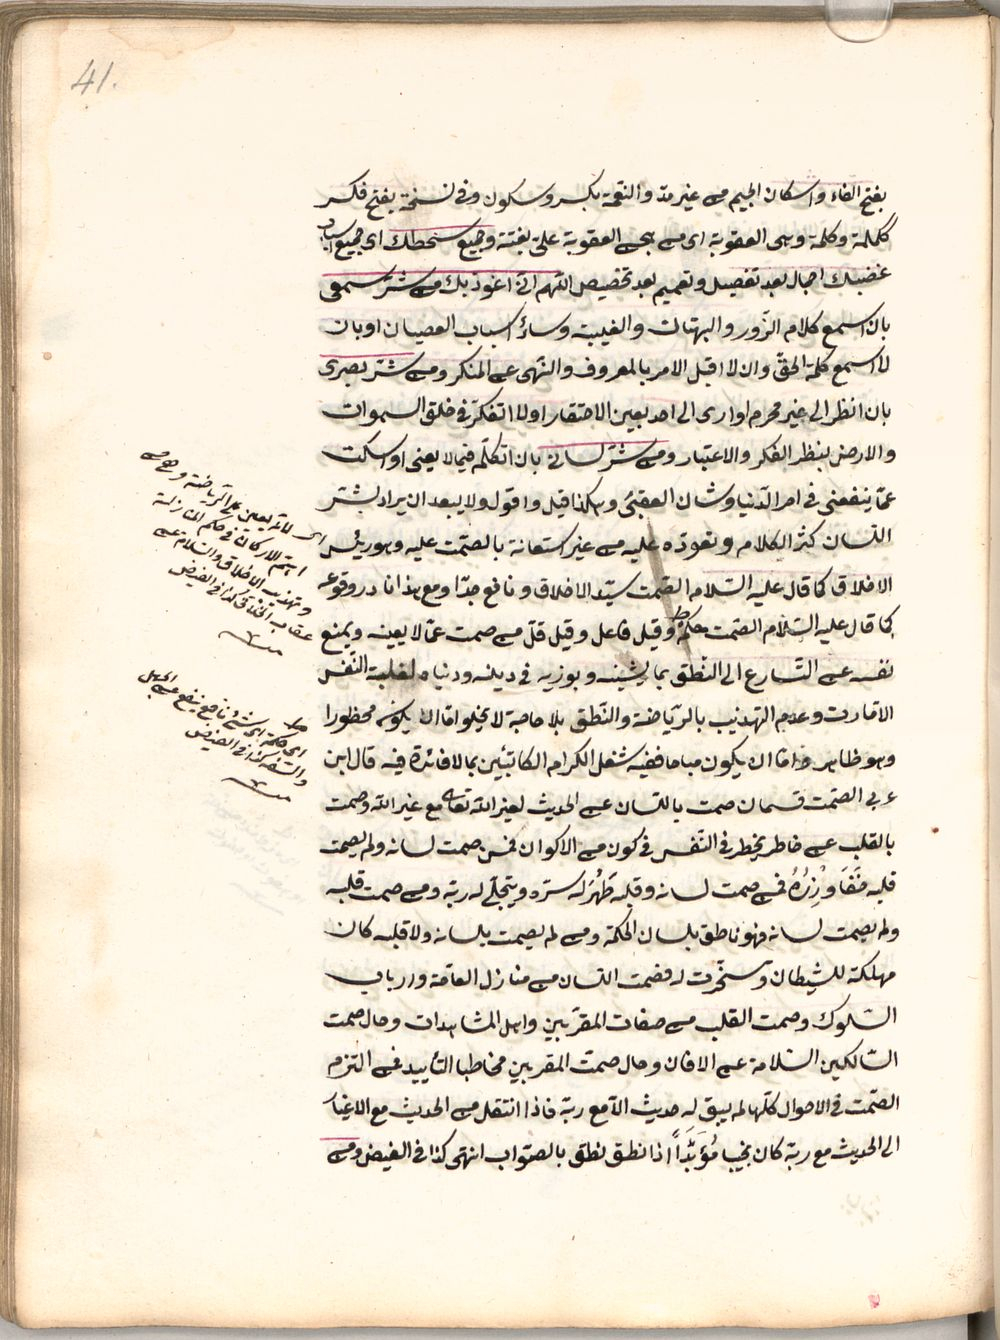 41.
بفتح الفاء واسكان الجيم من غير مدّ والنقمة بكسر وسكون وفى نسخة بفتح فكسر
ككلمة وكلمة وهى العقوبة اى من يجى العقوبة على بغتة وجميع سخطك اى جميع اسباب
غضبك اجمال بعد تفصيل وتعميم بعد تخصيص اللّهم انّى اعوذ بك من شرّ سمعى
بان اسمع كلام الزّور والبهتان والغيبة وسائر اسباب العصيان او بان
لا اسمع كلمة الحقّ وان لا اقبل الامر بالمعروف والنّهى عن المنكر ومن شرّ بصرى
بان انظر الى غير محرم او ارى الى احد بعين الاحتقار او لا اتفكّر فى خلق السموات
والارض بنظر الفكر والاعتبار ومن شرّ لسانى بان اتكلّم فيما لا يعنى او اسكت
عمّا ينفعنى فى امر الدّنيا وشان العقبى وهكذا قيل واقول ولا يبعد ان يراد بشر
اللسان كثر الكلام وتعوّذه عليه من غير استعانة بالصّمت عليه وهو رئيس
الاخلاق كما قال عليه السّلام الصّمت سيّد الاخلاق ونافع جدّا ومع هذا نادر وقوعه
كما قال عليه السّلام الصّمت حكم وقيل فاعل وقيل قلّ من صمت عمّا لا يعينه ويمنع
نفسه عن التّسارع الى النّطق بما يشينه ويوزيه فى دينه ودنياه لغلبة النّفس
الامّارة وعدم التهذيب بالرّياضة والنّطق بلا حاجة لا يخلو امّا ان يكون محظورا
وهو ظاهر وامّا ان يكون مباحا ففيه شغل الكرام الكاتبين بما لا فائدة فيه قال ابن
عربى الصّمت قسمان صمت باللسان عن الحديث لغير اللّه تعالى مع غير اللّه وصمت
بالقلب عن خاطر يخطر فى النّفس فى كون من الاكوان فمن صمت لسانه ولم يصمت
قلبه خفّ وِزْرُهُ فمن صمت لسانه وقلبه ظهر له سرّه ويتجلّى له ربّه ومن صمت قلبه
ولم يصمت لسانه فهو ناطق بلسان الحكمة ومن لم يصمت بلسانه ولا قلبه كان
مهلكة للشيطان وسخّرت له فصمت اللسان من منازل العامّة وارباب
السّلوك وصمت القلب من صفات المقرّبين واهل المشاهدات وحال صمت
السّالكين السّلامة عن الافات وحال صمت المقرّبين مخاطبا التأييد فمن التزم
الصّمت فى الاحوال كلّها لم يبق له حديث الّا مع ربّه فاذا انتقل من الحديث مع الاغيار
الى الحديث مع ربّه كان نجيا مُؤيَّداً اذا نطق نطق بالصّواب انتهى كذا فى الفيض ومن
اى لانّه يعين على الرّياضة وهى من
اهمّ الاركان فى حكم المنازلة
وتهذيب الاخلاق والسّلامة عن
كذا فى الفيض
اى حكمة اى شئ نافع يمنع عن الجهل
والسّفه كذا فى الفيض